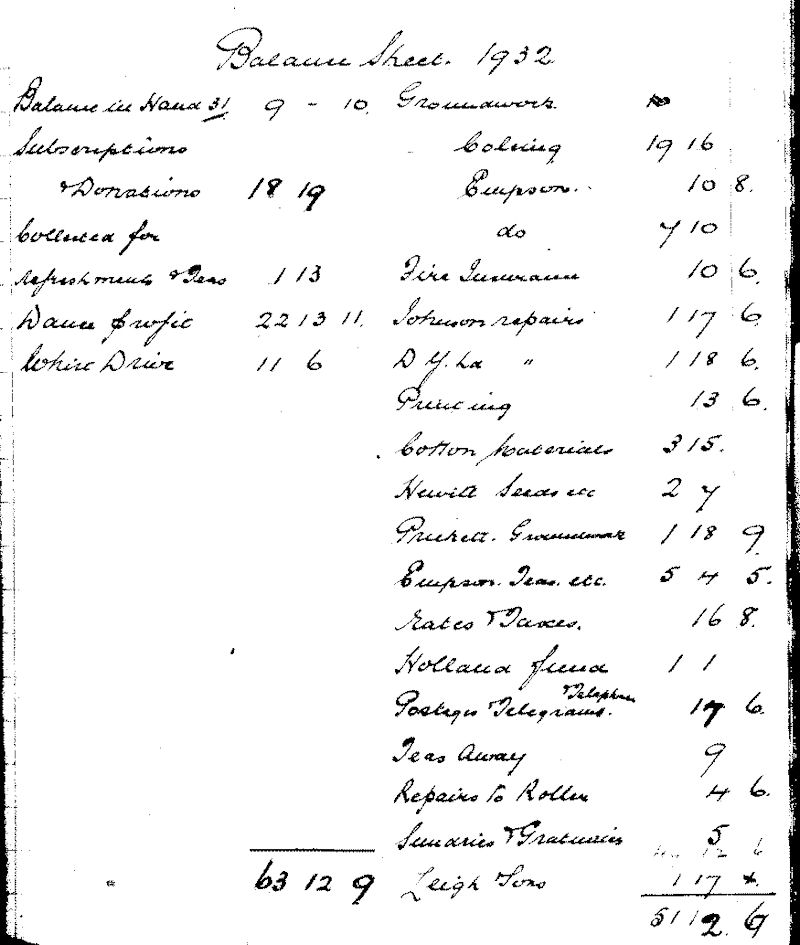 Balance Sheet. 1932
Balance in Hand 31 9 - 10. Groundwork
Subscriptions Colsing 19 16
& Donations 18 19 Empson. 10 8.
Collected for do 7 10
refreshments & Teas 1 13 Fire Insurance 10 6.
Dance profit 22 13 11. Johnson repairs 1 17 6.
Whist Drive 11 6 D Y. La " 1 18 6.
Printing 13 6.
Cotton Materials 3 15.
Hewitt Seeds etc 2 7
Prickett. Groundwork 1 18 9
Empson. Teas. etc. 5 4 5.
Rates & Taxes. 16 8.
Holland fund 1 1
Postages & Telegrams. & Telephone 17 6.
Teas Away 9
Repairs to Roller 4 6.
Sundries & Gratuities 5
63 12 9 Leigh Sons 1 17
51 12 6